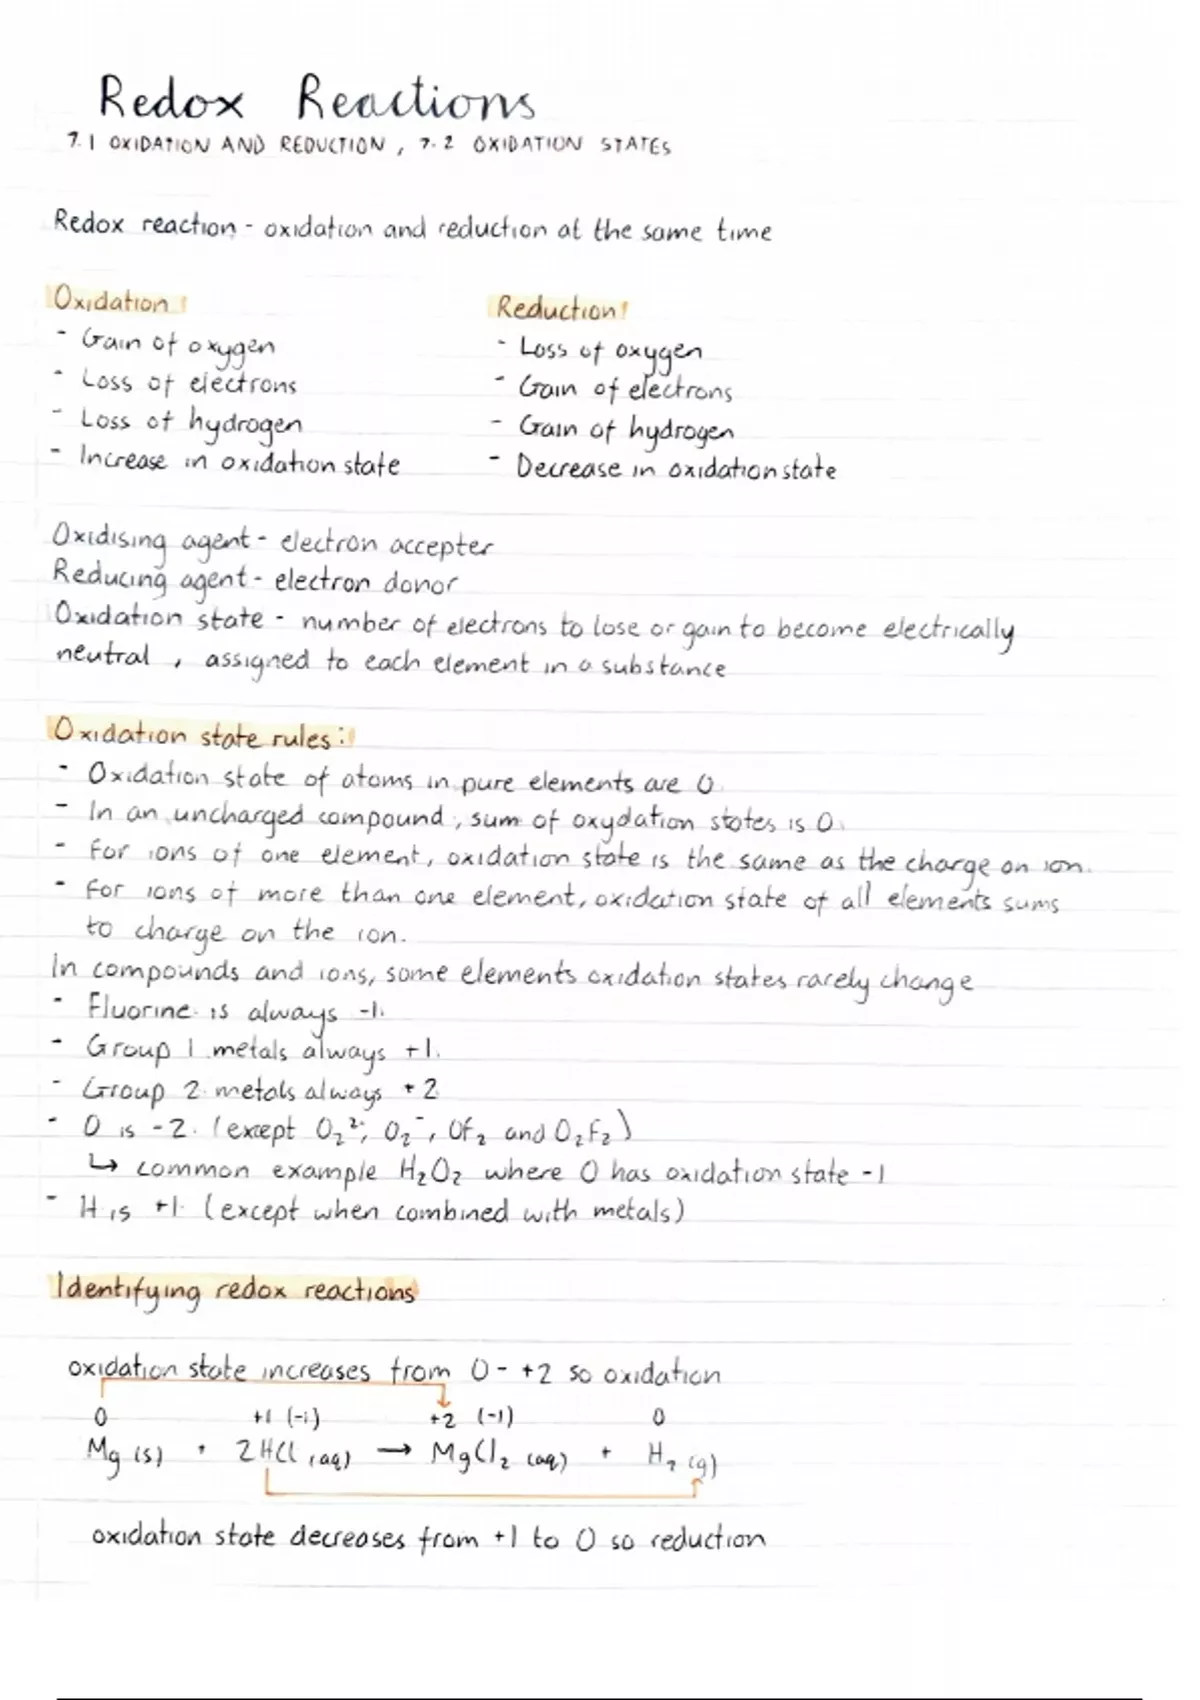 Redox Reactions
7.1 OXIDATION AND REDUCTION, 7.2 OXIDATION STATES
Redox reaction - oxidation and reduction at the same time
Oxidation:
- Gain of oxygen
- Loss of electrons
- Loss of hydrogen
- Increase in oxidation state
Reduction:
- Loss of oxygen
- Gain of electrons
- Gain of hydrogen
- Decrease in oxidation state
Oxidising agent - electron accepter
Reducing agent - electron donor
Oxidation state - number of electrons to lose or gain to become electrically
neutral, assigned to each element in a substance
Oxidation state rules:
- Oxidation state of atoms in pure elements are 0.
- In an uncharged compound, sum of oxydation states is 0.
- For ions of one element, oxidation state is the same as the charge on ion.
- For ions of more than one element, oxidation state of all elements sums
to charge on the ion.
In compounds and ions, some elements oxidation states rarely change
- Fluorine is always -1.
- Group 1 metals always +1.
- Group 2 metals always +2
- O is -2. (except O₂²⁻, O₂⁻, OF₂ and O₂F₂)
↳ common example H₂O₂ where O has oxidation state -1
- H is +1. (except when combined with metals)
Identifying redox reactions
oxidation state increases from 0 - +2 so oxidation
0 +1 (-1) +2 (-1) 0
Mg (s) + 2HCl (aq) → MgCl₂ (aq) + H₂ (g)
oxidation state decreases from +1 to 0 so reduction